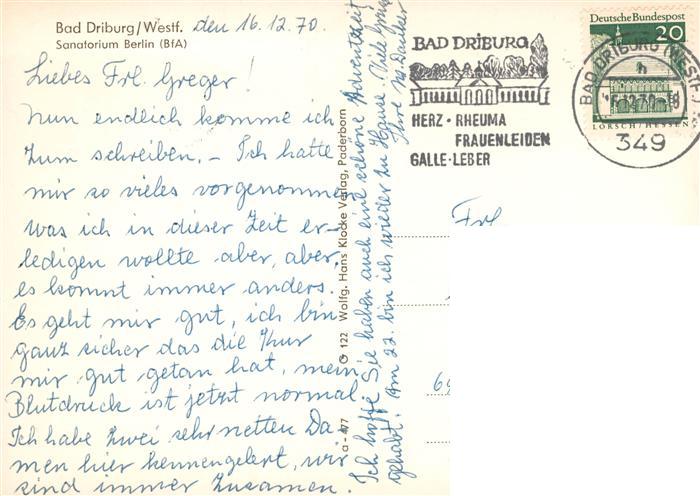 Bad Driburg/Westf. den 16.12.70.
Sanatorium Berlin (BfA)
Liebes Frl. Greger!
Nun endlich komme ich
zum schreiben. – Ich hatte
mir so vieles vorgenommen
was ich in dieser Zeit er-
ledigen wollte aber, aber,
es kommt immer anders.
Es geht mir gut, ich bin
ganz sicher das die Kur
mir gut getan hat, mein
Blutdruck ist jetzt normal.
Ich habe zwei sehr netten Da-
men hier kennengelert, wir
sind immer zusamen.
Ich hoffe Sie haben auch eine schöne Adventszeit
gehabt. Am 22. bin ich wieder zu Hause. Viele
Ihre
a-477 G 122 Wolfg. Hans Klocke Verlag, Paderborn
BAD DRIBURG
HERZ · RHEUMA
FRAUENLEIDEN
GALLE · LEBER
Deutsche Bundespost
20
LORSCH/HESSEN
BAD DRIBURG (WESTF)
349
Frl.